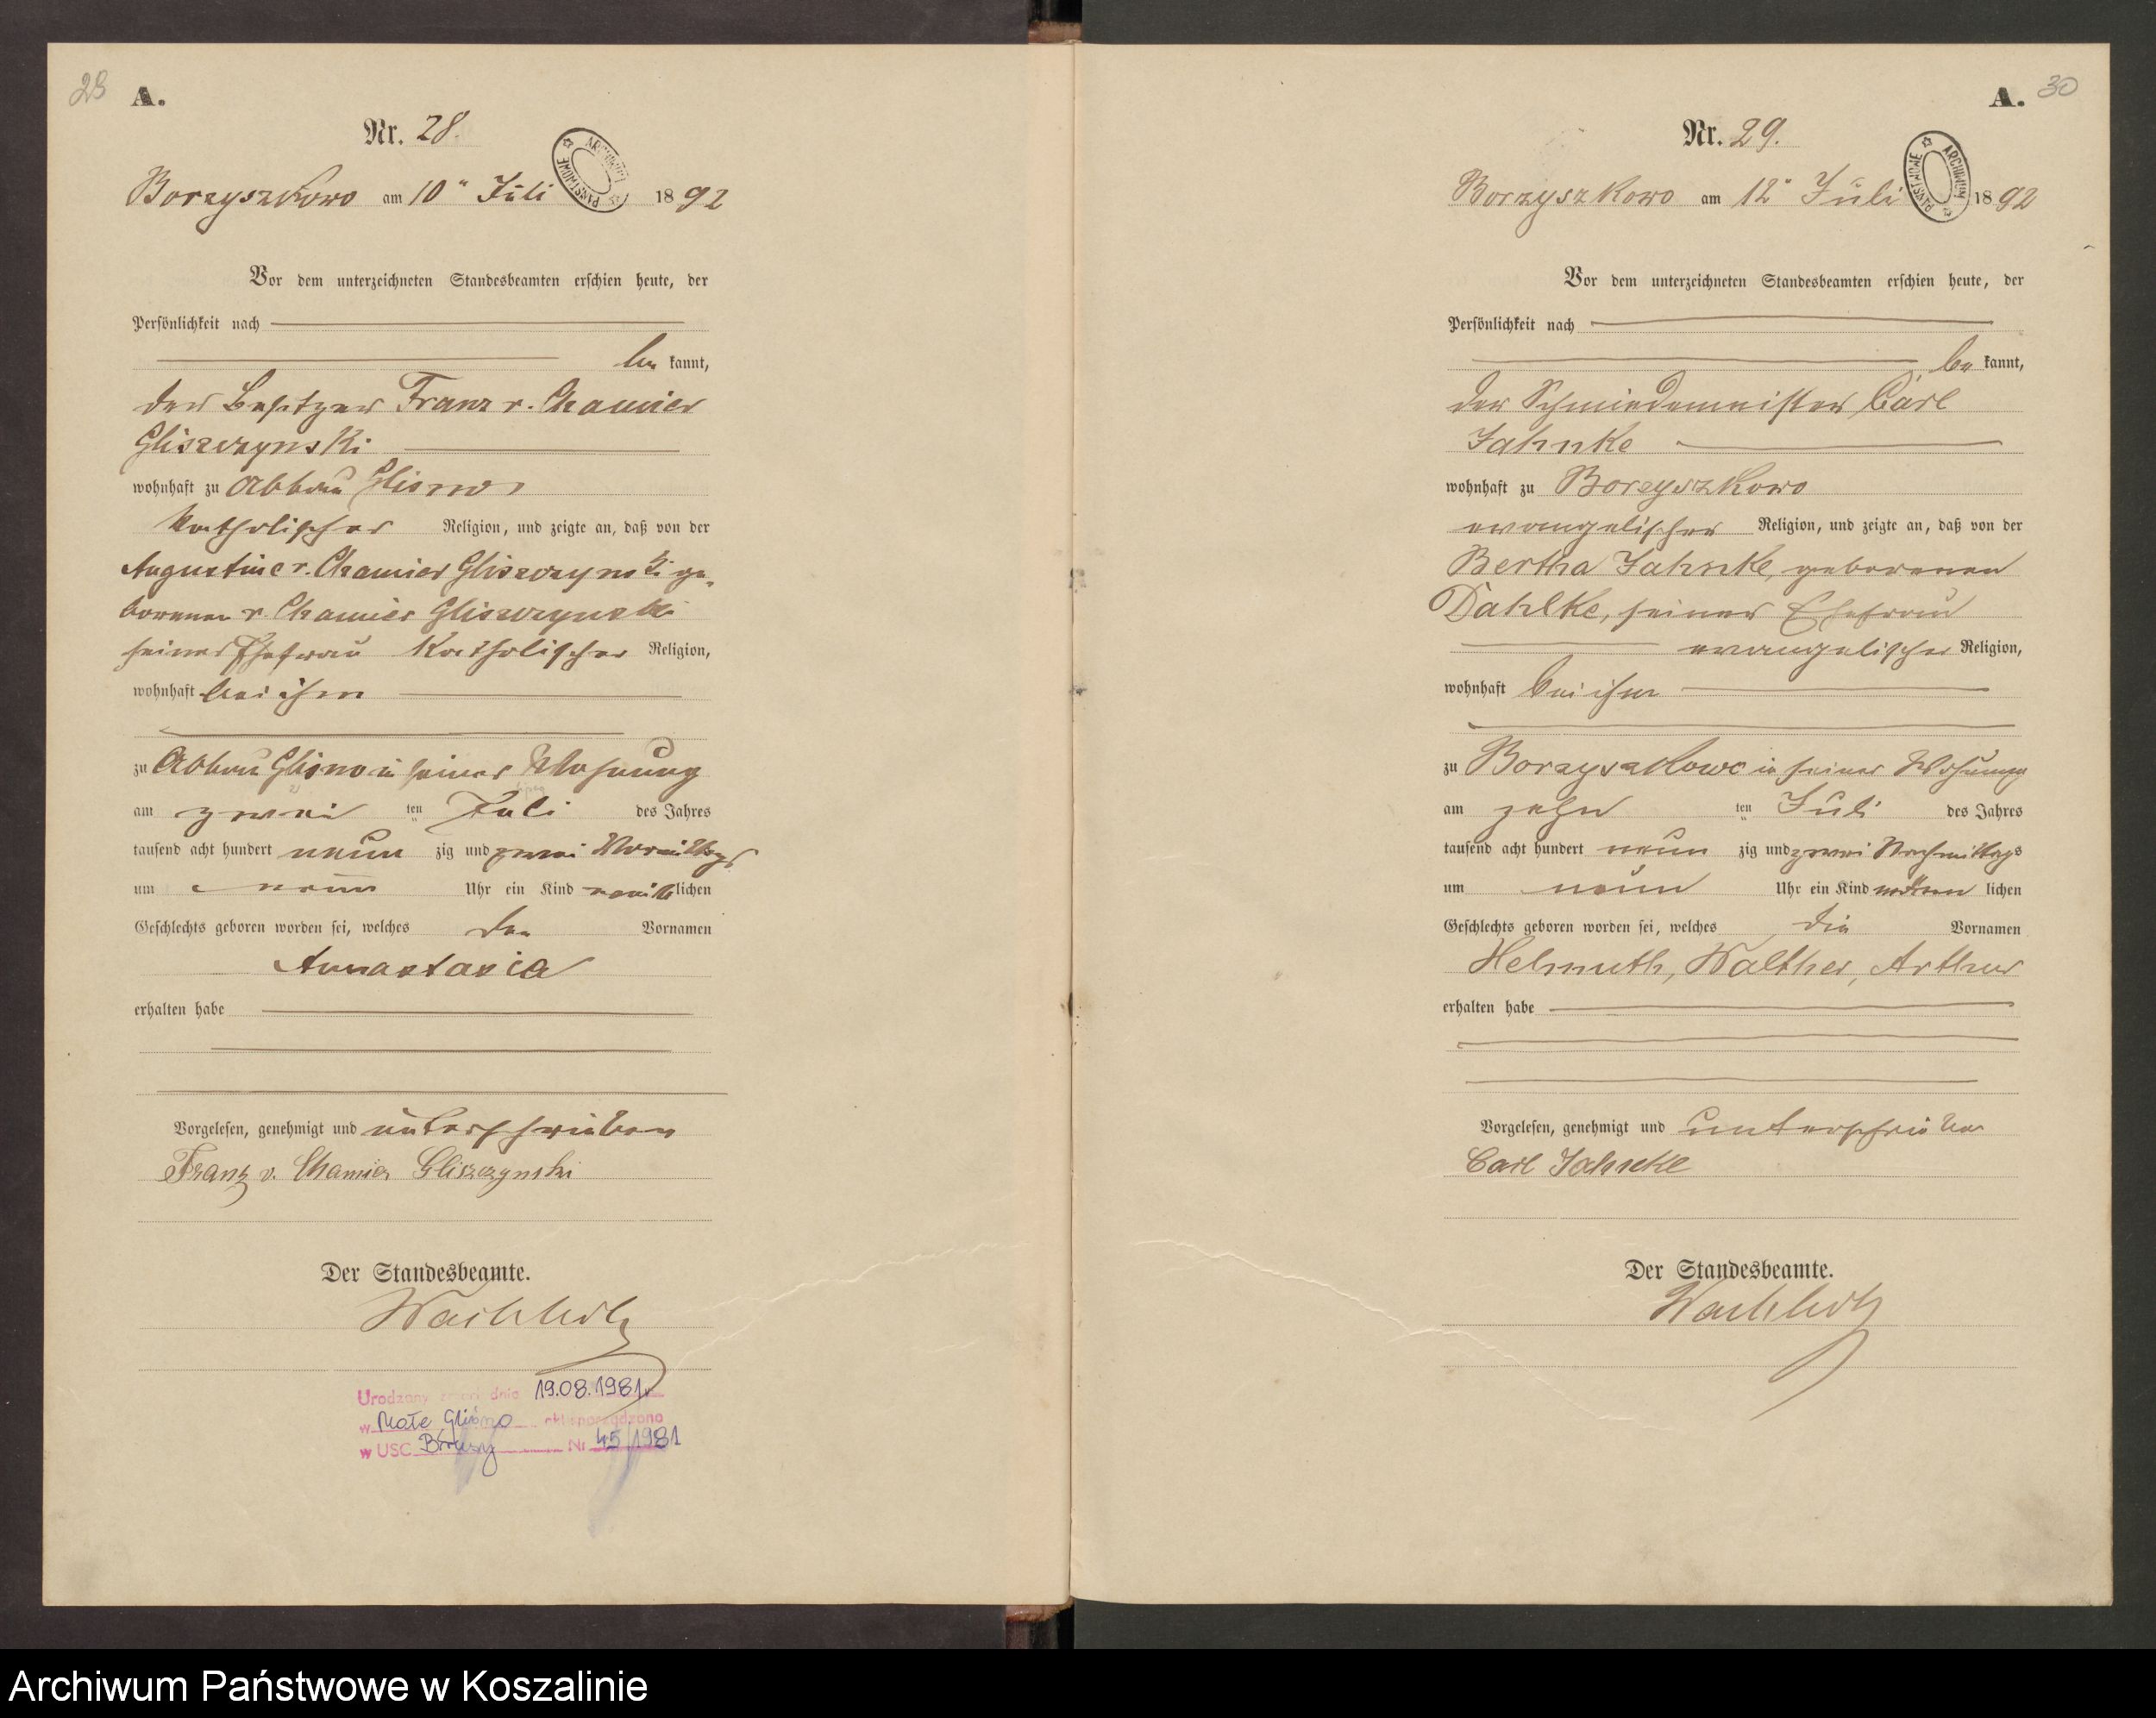 29
A.
Nr. 28.
ARCHIWUM PAŃSTWOWE
Borzyszkowo am 10ᵗ Juli 1892
Vor dem unterzeichneten Standesbeamten erschien heute, der
Persönlichkeit nach
be kannt,
der Besitzer Franz v. Chamier
Gliszczynski
wohnhaft zu Abbau Glisno
katholischer Religion, und zeigte an, daß von der
Augustine v. Chamier Gliszczynski ge-
borenen v. Chamier Gliszczynski
seiner Ehefrau katholischer Religion,
wohnhaft bei ihm
zu Abbau Glisno in seiner Wohnung
am zwei ten Juli des Jahres
tausend acht hundert neun zig und zwei Vormittags
um neun Uhr ein Kind weib lichen
Geschlechts geboren worden sei, welches den Vornamen
Annastasia
erhalten habe
Vorgelesen, genehmigt und unterschrieben
Franz v. Chamier Gliszczynski
Der Standesbeamte.
Wachholz
Urodzony zmarł dnia 19.08.1981 r.
w Małe Gliśno akt sporządzono
w USC Brusy Nr 45/1981
A.
30
Nr. 29.
ARCHIWUM PAŃSTWOWE
Borzyszkowo am 12ᵗ Juli 1892
Vor dem unterzeichneten Standesbeamten erschien heute, der
Persönlichkeit nach
be kannt,
der Schmiedemeister Carl
Jahnke
wohnhaft zu Borzyszkowo
evangelischer Religion, und zeigte an, daß von der
Bertha Jahnke, geborenen
Dahlke, seiner Ehefrau
evangelischer Religion,
wohnhaft bei ihm
zu Borzyszkowo in seiner Wohnung
am zehn ten Juli des Jahres
tausend acht hundert neun zig und zwei Nachmittags
um neun Uhr ein Kind männ lichen
Geschlechts geboren worden sei, welches die Vornamen
Helmuth, Walther, Arthur
erhalten habe
Vorgelesen, genehmigt und unterschrieben
Carl Jahnke
Der Standesbeamte.
Wachholz
Archiwum Państwowe w Koszalinie